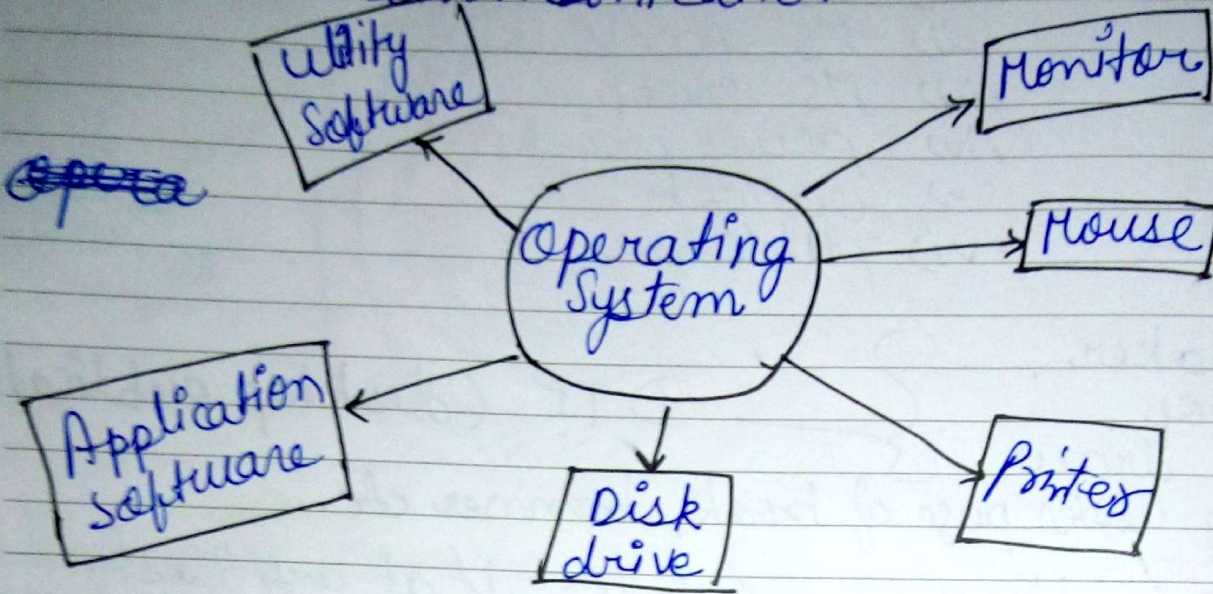 Utility
Software
Monitor
Operating
System
Mouse
Application
software
Disk
drive
Printer